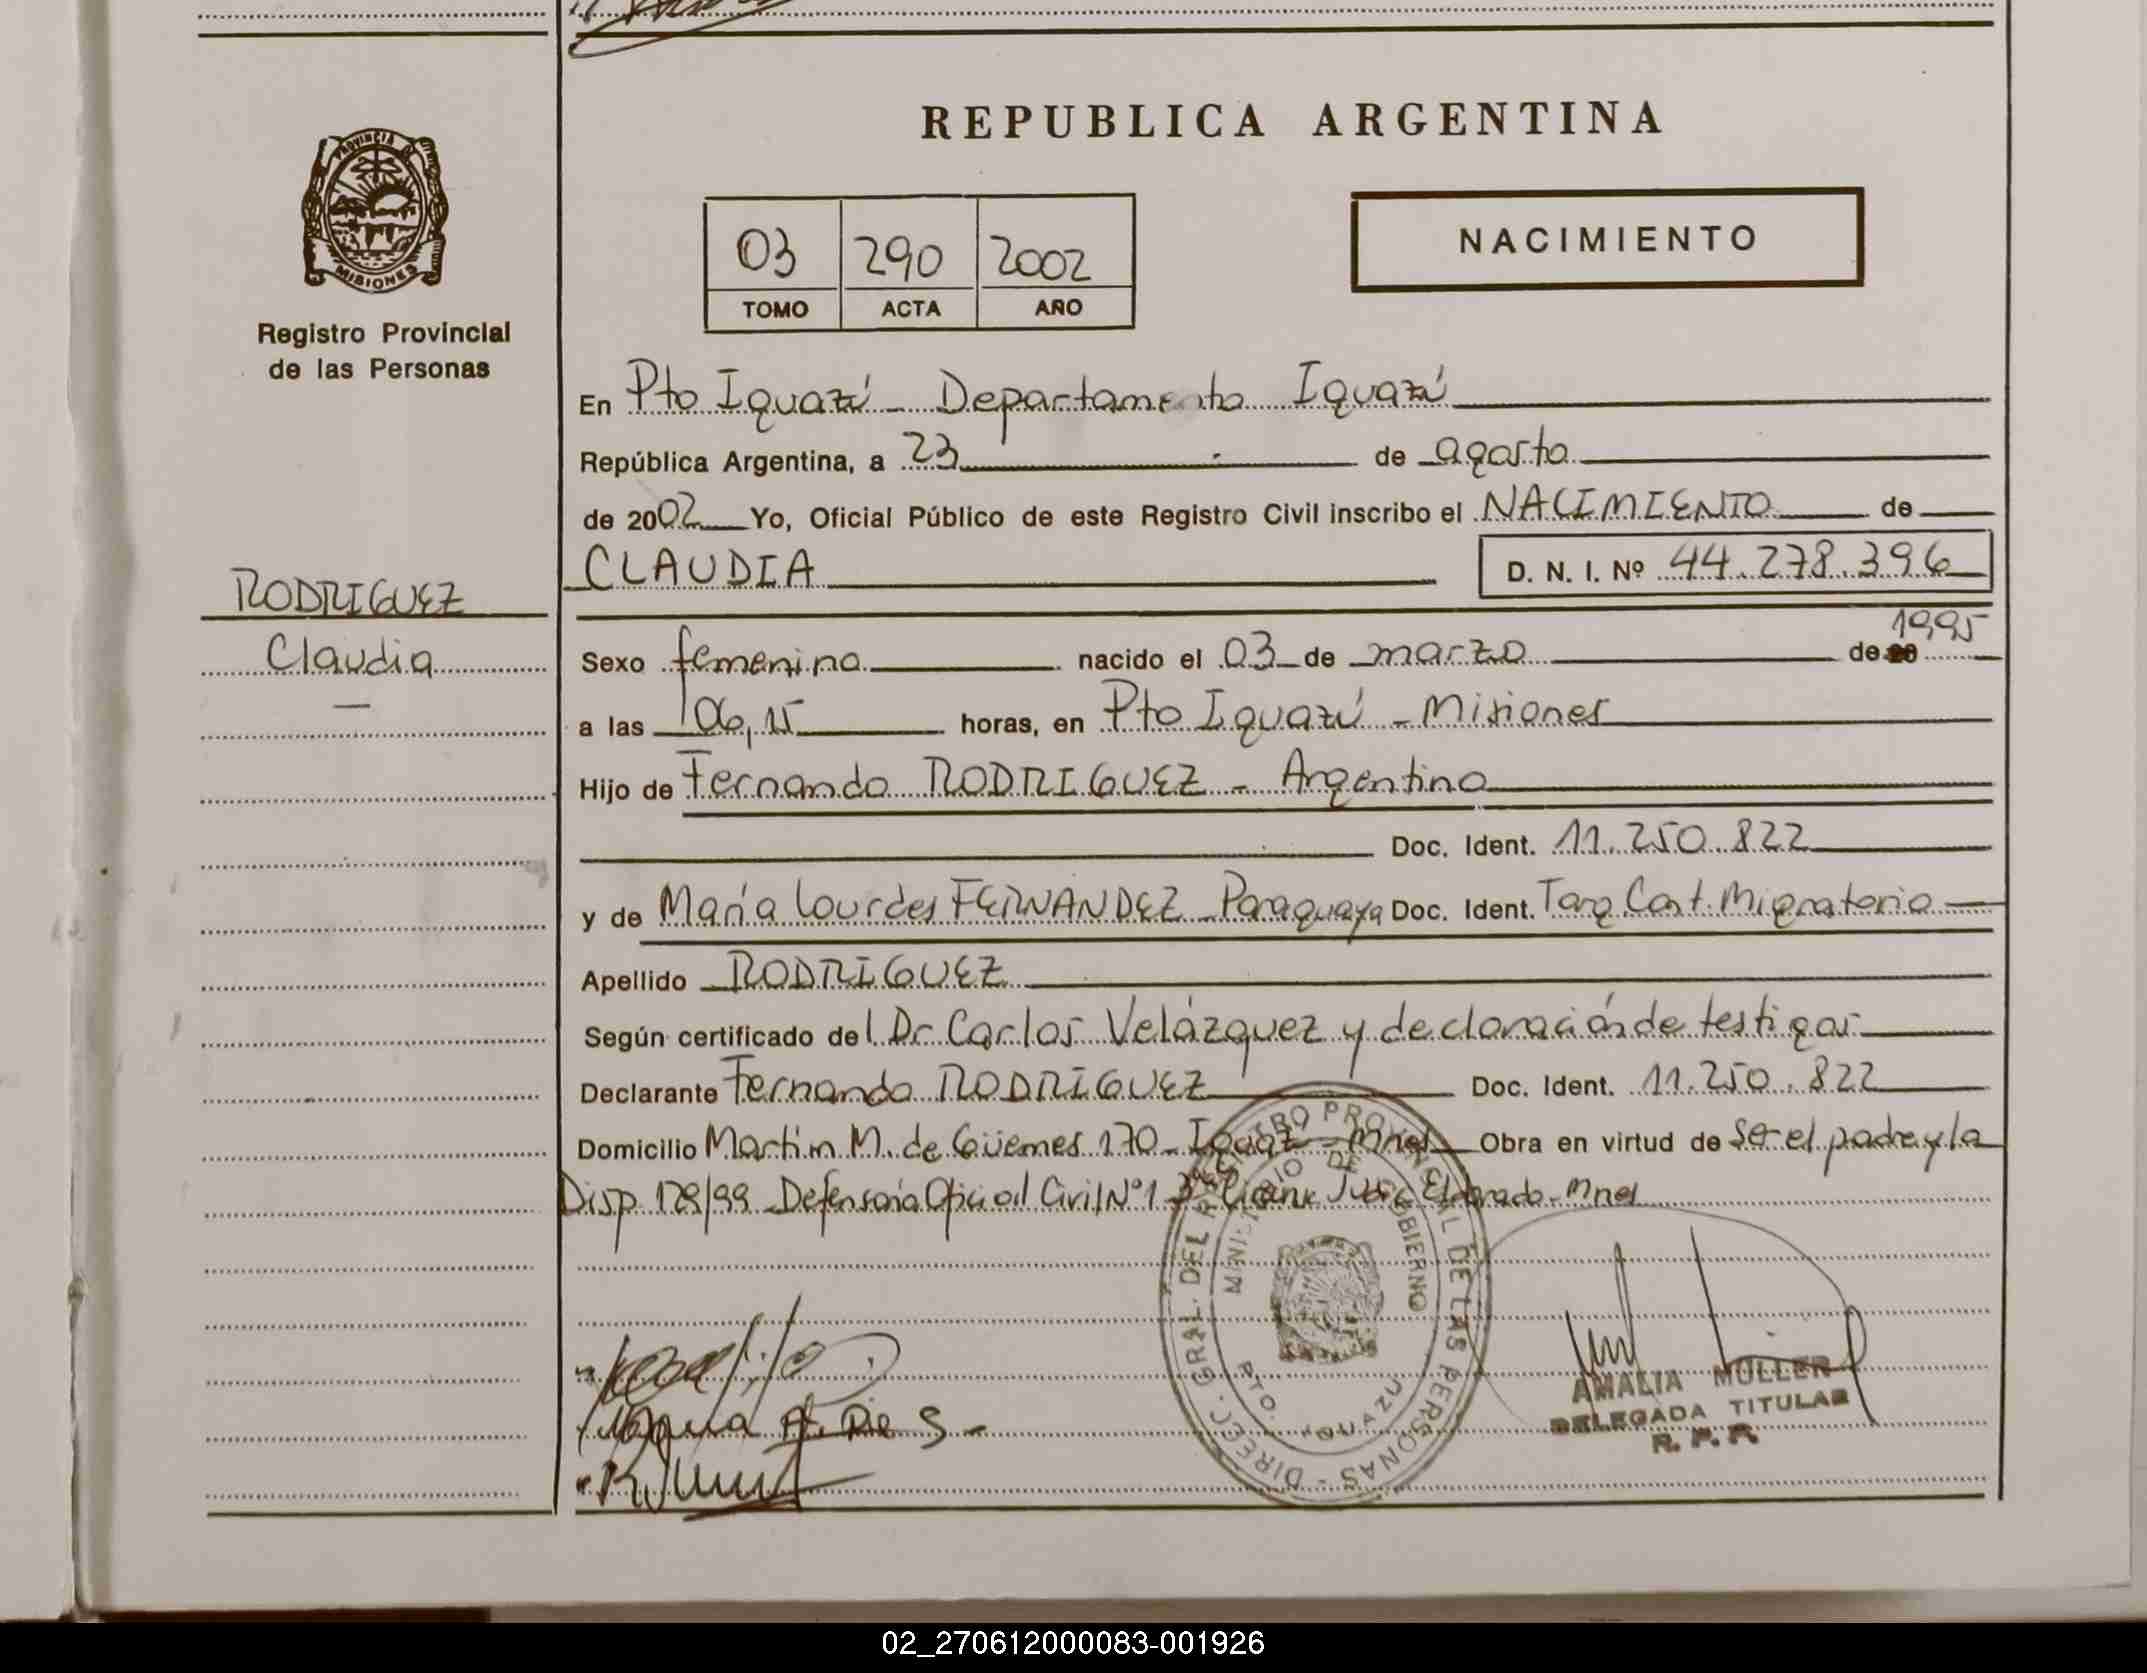 REPUBLICA ARGENTINA
PROVINCIA DE
MISIONES
Registro Provincial
de las Personas
RODRIGUEZ
Claudia
—
03 290 2002
TOMO ACTA AÑO
NACIMIENTO
En Pto Iguazú - Departamento Iguazú
República Argentina, a 23 de agosto
de 2002 Yo, Oficial Público de este Registro Civil inscribo el NACIMIENTO de
CLAUDIA D. N. I. Nº 44.278.396
Sexo femenino nacido el 03 de marzo de 1995
a las 06,15 horas, en Pto Iguazú - Misiones
Hijo de Fernando RODRIGUEZ - Argentino
Doc. Ident. 11.250.822
y de María Lourdes FERNANDEZ - Paraguaya Doc. Ident. Targ. Cont. Migratorio
Apellido RODRIGUEZ
Según certificado del Dr Carlos Velázquez y declaración de testigos
Declarante Fernando RODRIGUEZ Doc. Ident. 11.250.822
Domicilio Martim M. de Güemes 170 - Iguaz - Mnes Obra en virtud de ser el padre y la
Disp 178/99 - Defensoría Oficial Civil Nº 1 Eldorado - Mnes
DIREC. GRAL. DEL REGISTRO PROVINCIAL DE LAS PERSONAS -
MINISTERIO DE GOBIERNO
PTO. IGUAZU
AMALIA MULLER
DELEGADA TITULAR
R. P. P.
02_270612000083-001926